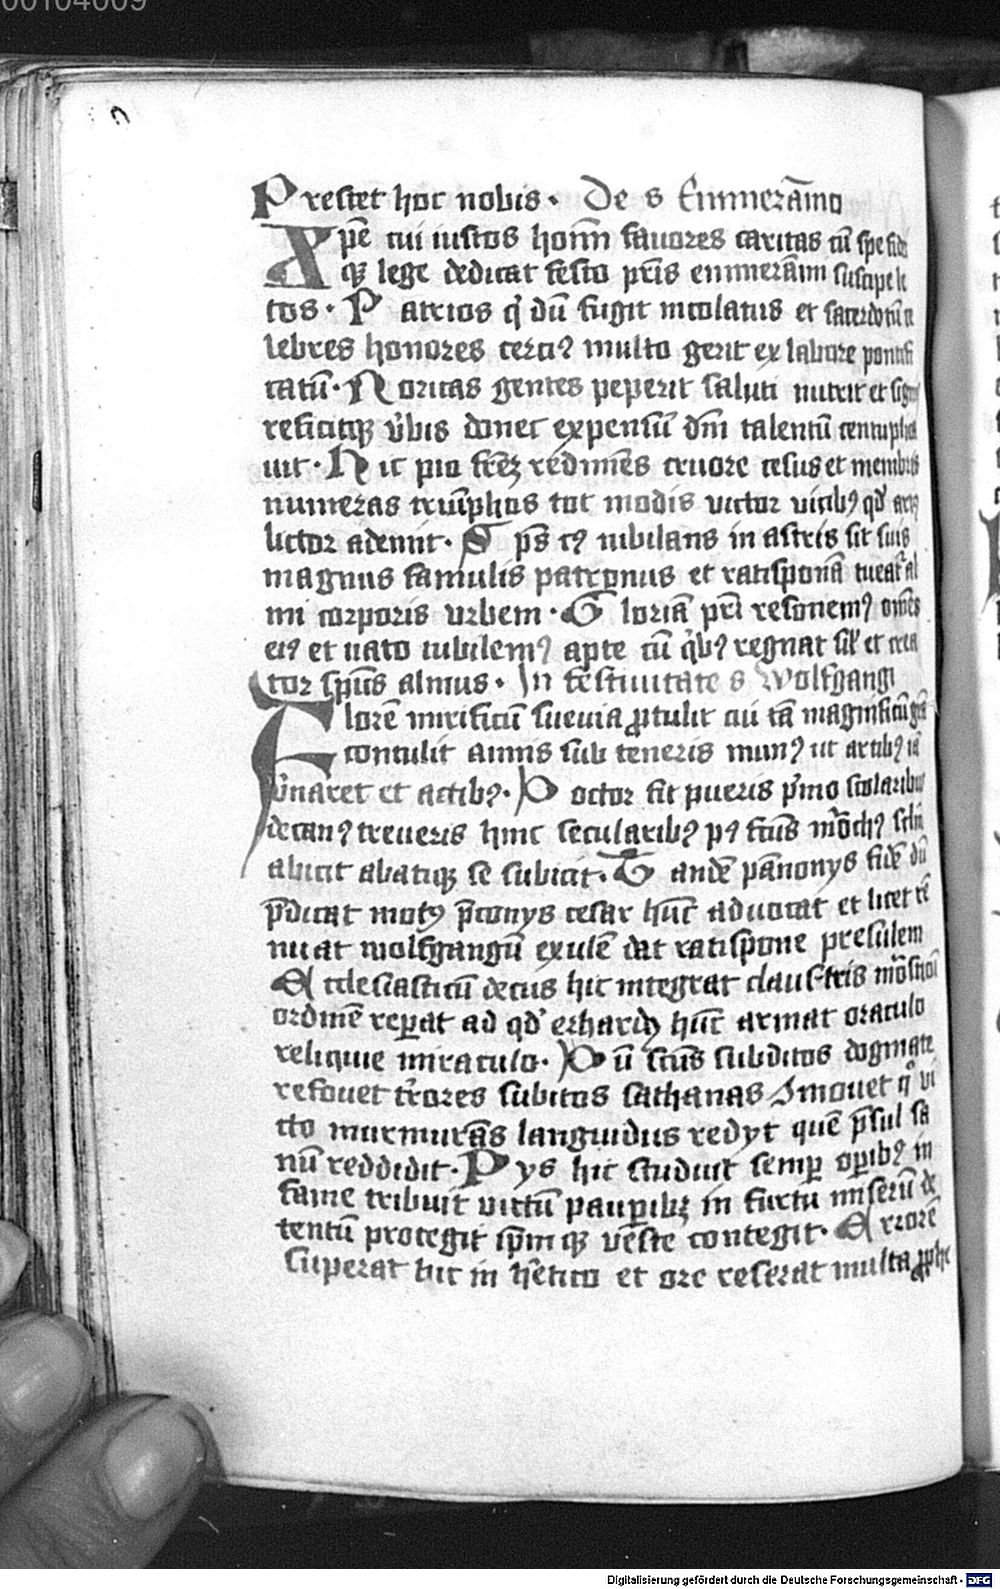 00104009
Prestet hoc nobis · De s Emmerāmo
Xpē cui iustos hoīm fauores caritas cū spe fide
qꝫ lege dedicat festo pr̄is emmerāmi suscipe le
tos · Patrios q̇ dū fugit incolatus et sacerdotū ce
lebres honores tercꝰ multo gerit ex labore pontifi
catū · Noricas gentes peperit saluti nutrit et
reficitqꝫ v̉bis donec expensū dn̄i talentū centuplica
uit · Hic pio frēꝫ redimēs cruore cesus et membris
numeras triūphos tot modis victor vicibꝰ qd'
lictor ademit · Sp̄s cꝰ iubilans in astris sit suis
magnus famulis patronus et ratisponā tueat᷑ al
mi corporis vrbem · Gloriā pr̄i resonemꝰ om̄s
eiꝰ et nato iubilemꝰ apte cū q̉bꝰ regnat sil' et crea
tor sp̄us almus · In festiuitate s Wolfgangi
Florē mirificū sueuia ꝓtulit cui tā magnificū
contulit annis sub teneris munꝰ ut artibꝰ
v̉naret et actibꝰ · Doctor fit pueris p̉mo scolaribus
decanꝰ treueris hinc secularibꝰ pꝰ
abicit abatiqꝫ se subicit · Tandē pānonys fidē dū
p̄dicat motꝰ p̄conys cesar hūc aduocat et licet re
nuat wolfgangū exulē dat ratispone presulem
Ecclesiasticū decus hic integrat claustris
ordinē reꝑat ad qd' erhardꝰ hūc armat oraculo
reliquie miraculo · Dū scūs subditos dogmate
refouet t̉rores subitos sathanas Amouet qͦ vi
cto murmurās languidus redyt quē p̄sul sa
nū reddidit · Pys hic studuit semꝑ oꝑibꝰ in
fame tribuit victū pauꝑibꝫ in furtu miserū de
tentū protegit sp̄m qꝫ veste contegit · Errorē
superat hic in hētico et ore reserat multa ꝓphe
Digitalisierung gefördert durch die Deutsche Forschungsgemeinschaft · DFG